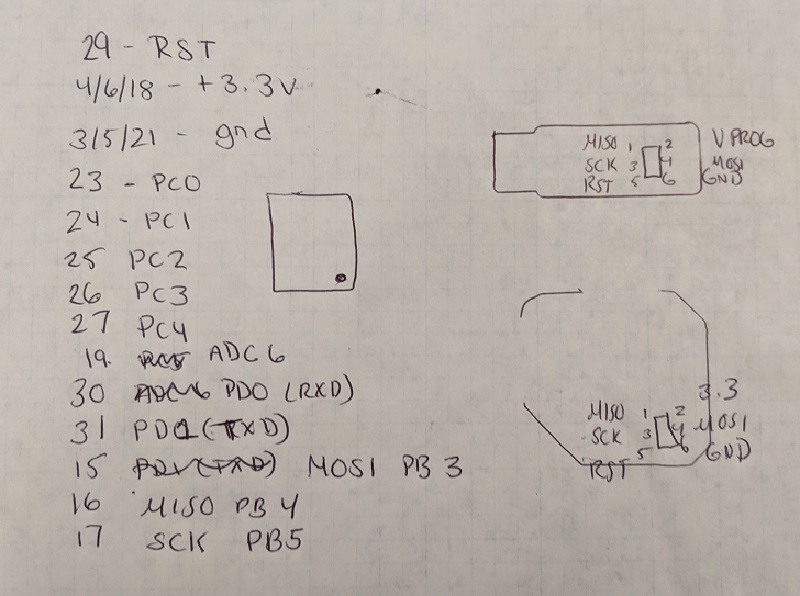 29 - RST
4/6/18 - +3.3V
3/5/21 - gnd
23 - PC0
24 - PC1
25 PC2
26 PC3
27 PC4
19. ADC6
30 PD0 (RXD)
31 PD1 (TXD)
15 MOSI PB3
16 MISO PB4
17 SCK PB5
MISO 1 2 VPROG
SCK 3 4 MOSI
RST 5 6 GND
3.3
MISO 1 2
SCK 3 4 MOSI
RST 5 6 GND